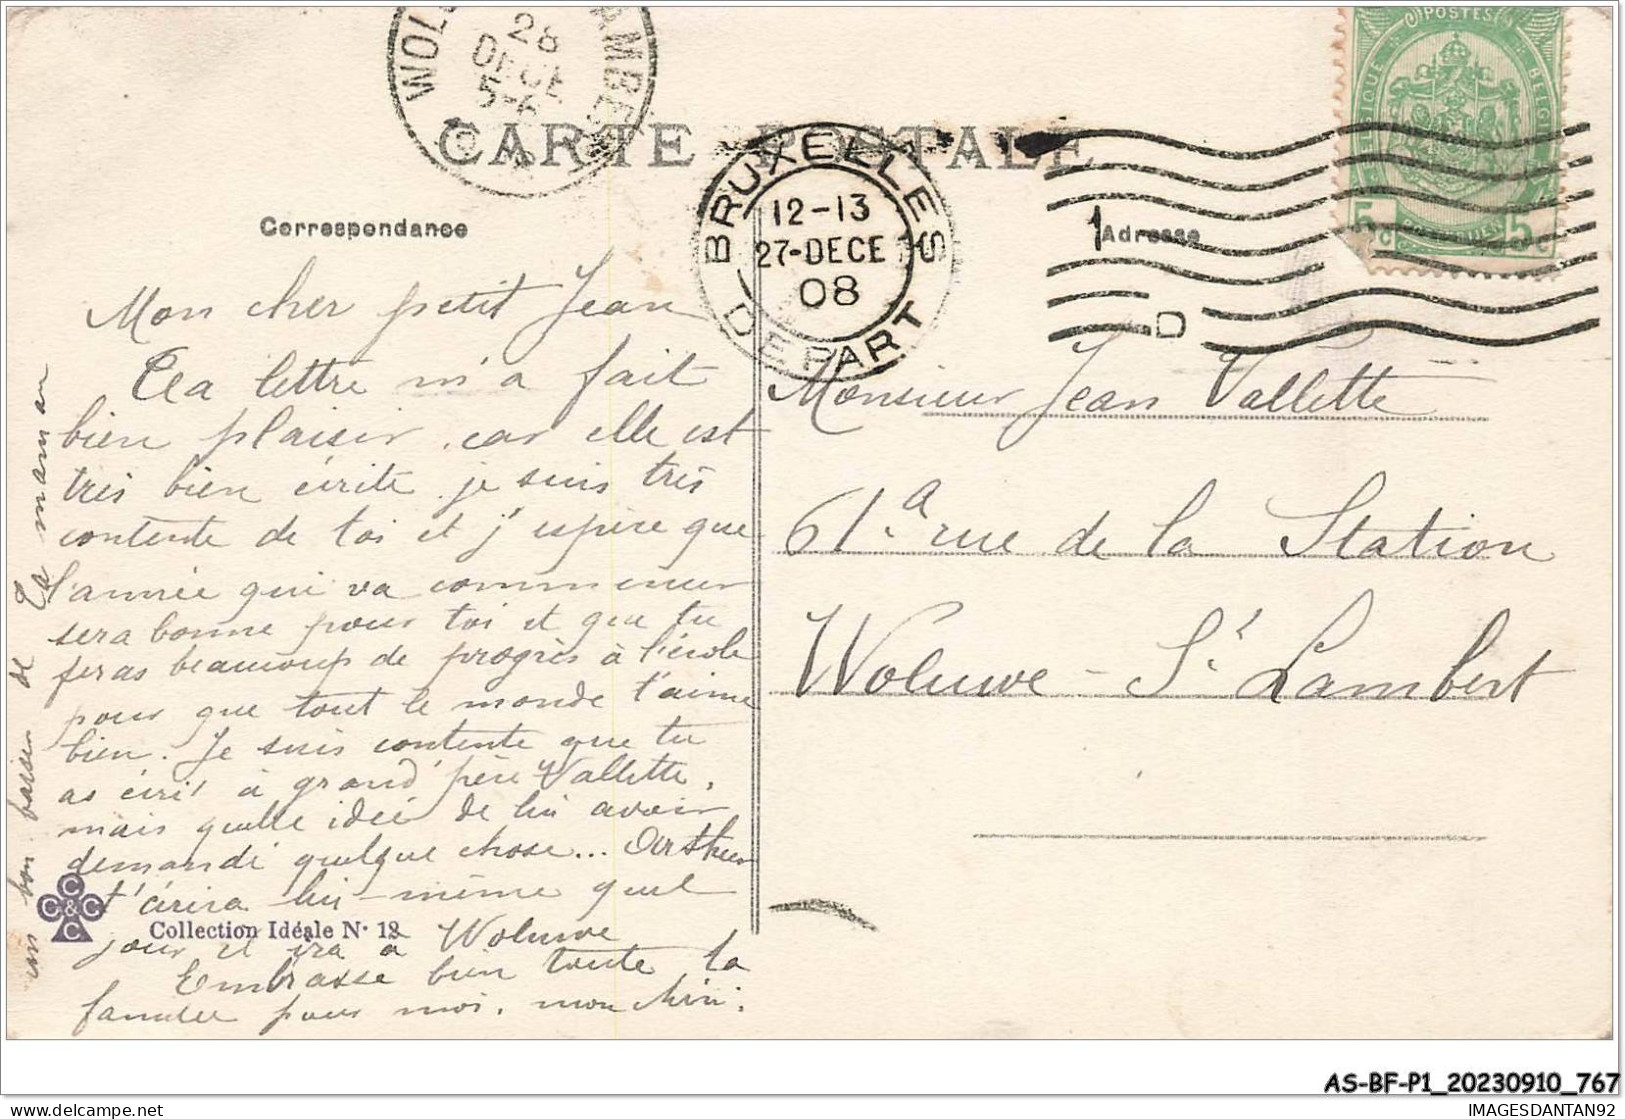 WOL AMBE
28
DECE
5-6
CARTE POSTALE
BRUXELLES
12-13
27-DECE
08
DEPART
POSTES
BELGIQUE BELGIE
5c 5c
1
D
Correspondance
Adresse
Mon cher petit Jean
Ta lettre m'a fait
bien plaisir, car elle est
très bien écrite je suis très
contente de toi et j'espère que
l'année qui va commencer
sera bonne pour toi et que tu
feras beaucoup de progrès à l'école
pour que tout le monde t'aime
bien. Je suis contente que tu
as écrit à grand'père Vallette,
mais quelle idée de lui avoir
demandé quelque chose... Arthur
t'écrira lui-même quel
jour il ira à Woluwe
Embrasse bien toute la
famille pour moi, mon chéri.
un bon baiser de Ta maman
Monsieur Jean Vallette
61.a rue de la Station
Woluwe - St. Lambert
C C & C C
Collection Idéale N· 12
AS-BF-P1_20230910_767
delcampe.net
IMAGESDANTAN92